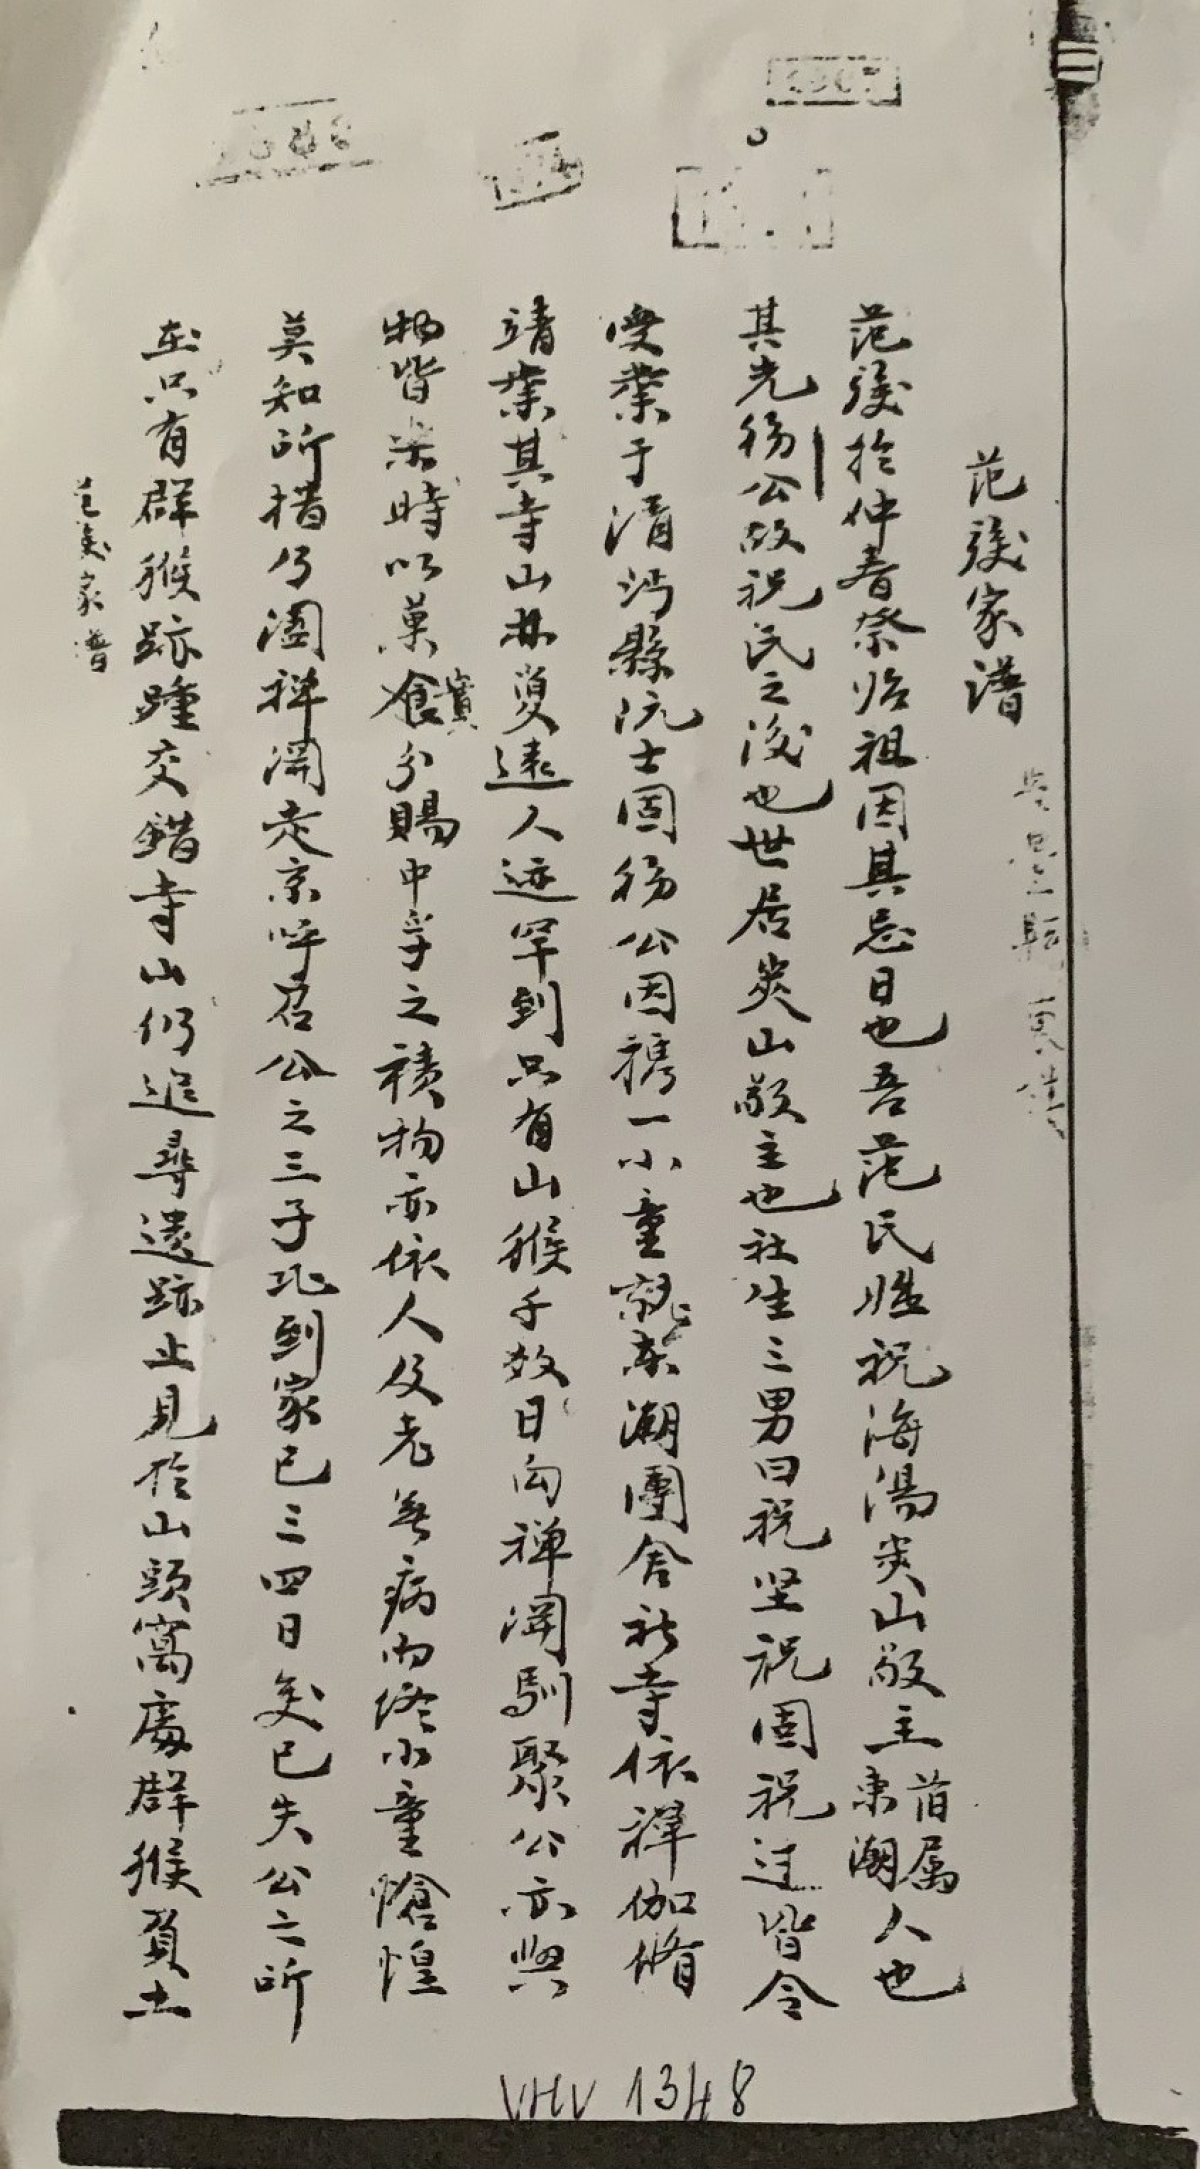 范族家譜
范族於仲春祭始祖因其忌日也吾范氏姓祝海陽炎山敬主首属東潮人也
其先扬公故祝氏之後也世居炎山敬主也社生三男曰祝坚祝固祝过皆令
受業于清沔縣阮士固扬公因携一小童就東潮團舍社寺依禅伽脩
靖業其寺山林夐遠人迹罕到只有山猴千数日向禅関馴聚公亦與
物皆楽時以菓實食分賜中孚之積物亦依人及老無病而終小童愴惶
莫知所措乃阖禅関走京呼召公之三子比到家已三四日矣已失公之所
在只有群猴跡踵交錯寺山仍追尋遺跡止見於山頭窩處群猴負土
范族家譜
VHV 1348